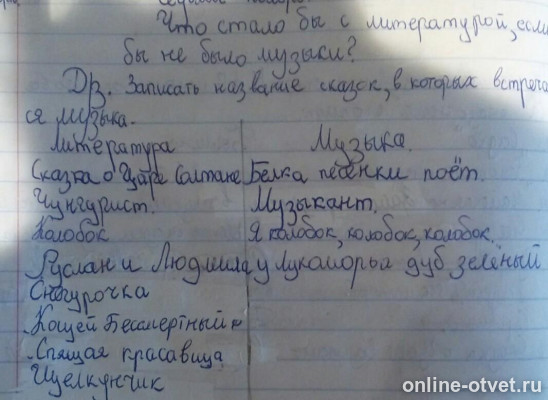 Что стало бы с литературой, если
бы не было музыки?
Дз. Записать название сказок, в которых встреча
ся музыка.
Литература Музыка.
Сказка о Царе Салтане Белка песенки поёт.
Чунгурист. Музыкант.
Колобок Я колобок, колобок, колобок.
Руслан и Людмила у лукоморья дуб зелёный
Снегурочка
Кощей Бессмертный
Спящая красавица
Щелкунчик
online-otvet.ru